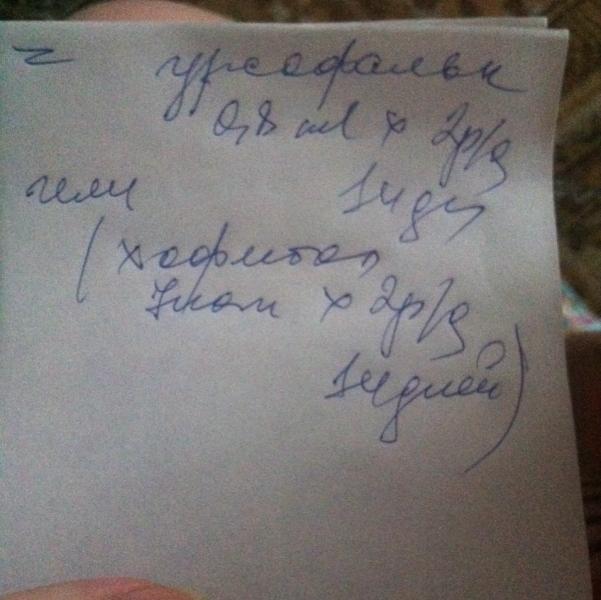 урсофальк
0,8 ml х 2р/д
или 14 дн
(хофитол
7 кап х 2р/д
14 дней)